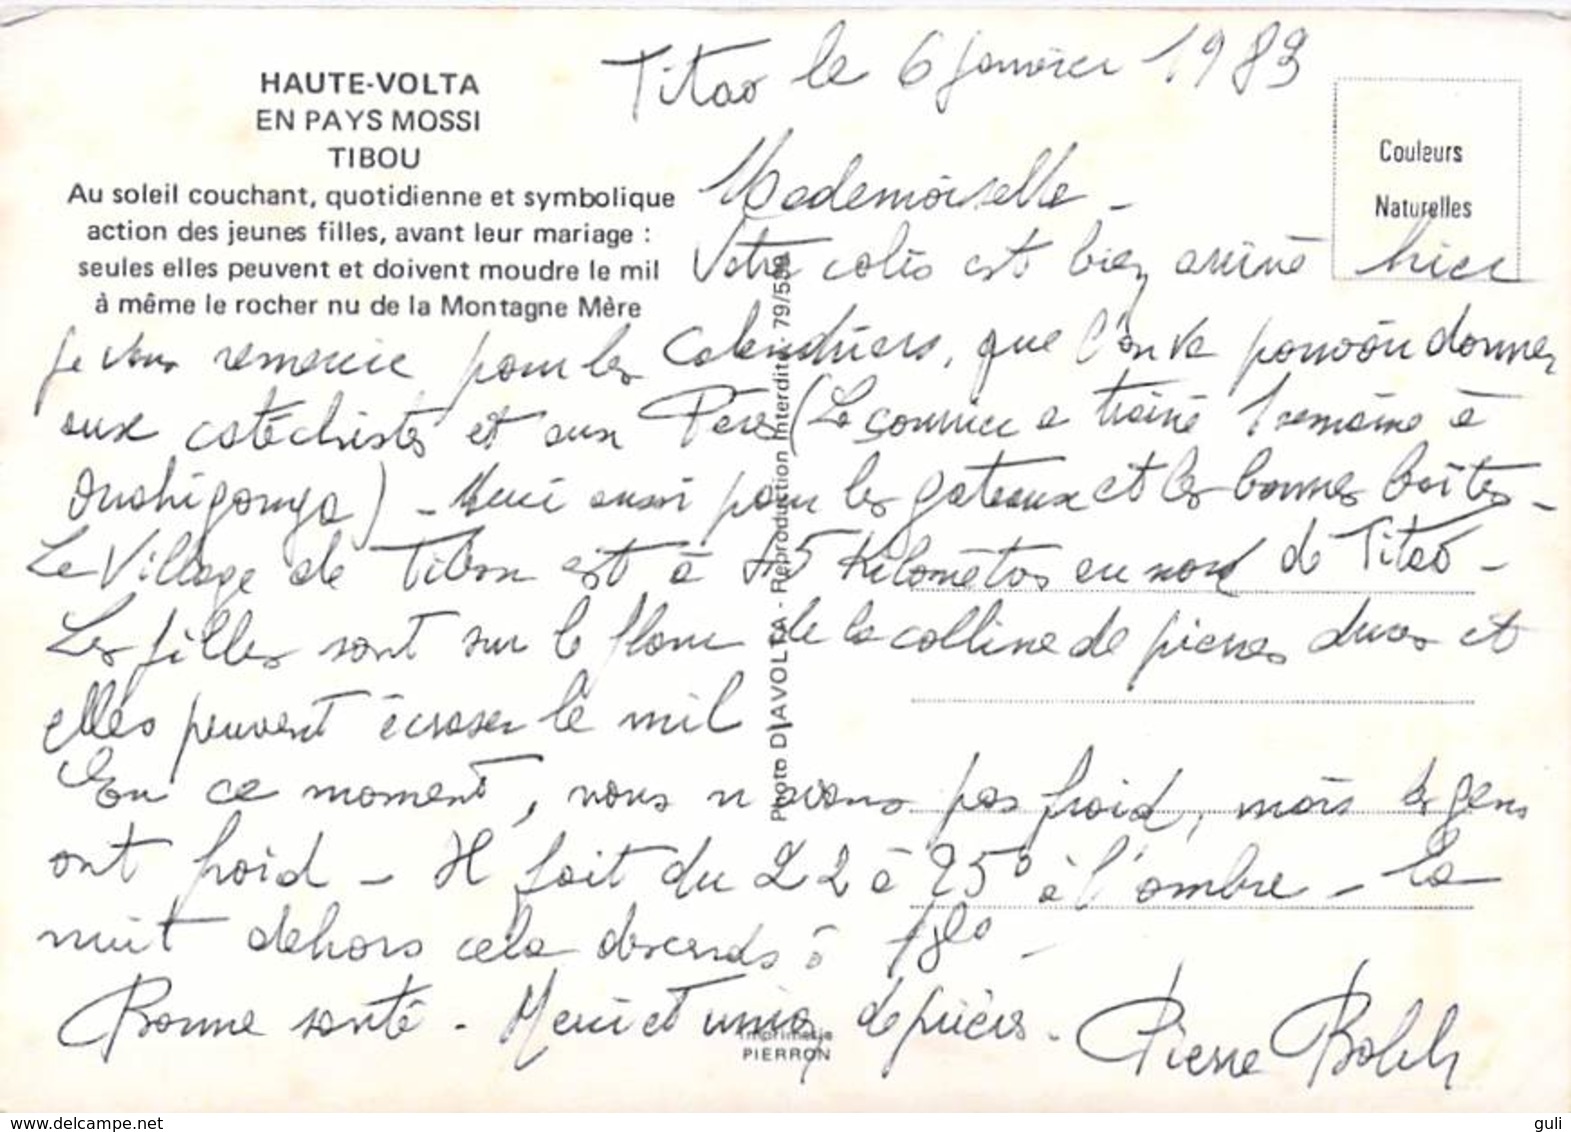 HAUTE-VOLTA
EN PAYS MOSSI
TIBOU
Au soleil couchant, quotidienne et symbolique
action des jeunes filles, avant leur mariage :
seules elles peuvent et doivent moudre le mil
à même le rocher nu de la Montagne Mère
Couleurs
Naturelles
Titao le 6 janvier 1983
Mademoiselle -
Votre colis est bien arrivé hier
je vous remercie pour les Calendriers, que l'on va pouvoir donner
aux catéchistes et aux Pères (Le courrier a traîné 1 semaine à
Ouahigouya) - Merci aussi pour les gateaux et les bonnes boîtes -
Le Village de Tibou est à 15 Kilomètres au nord de Titao -
Les filles sont sur le flanc de la colline de pierres dures et
elles peuvent écraser le mil
En ce moment, nous n'avons pas froid, mais les gens
ont froid - Il fait du 22 à 25° à l'ombre - la
nuit dehors cela descends à 18° -
Bonne santé - Merci et union de prières. Pierre
Photo DIAVOLTA - Reproduction Interdite
Imprimerie
PIERRON
www.delcampe.net
guli